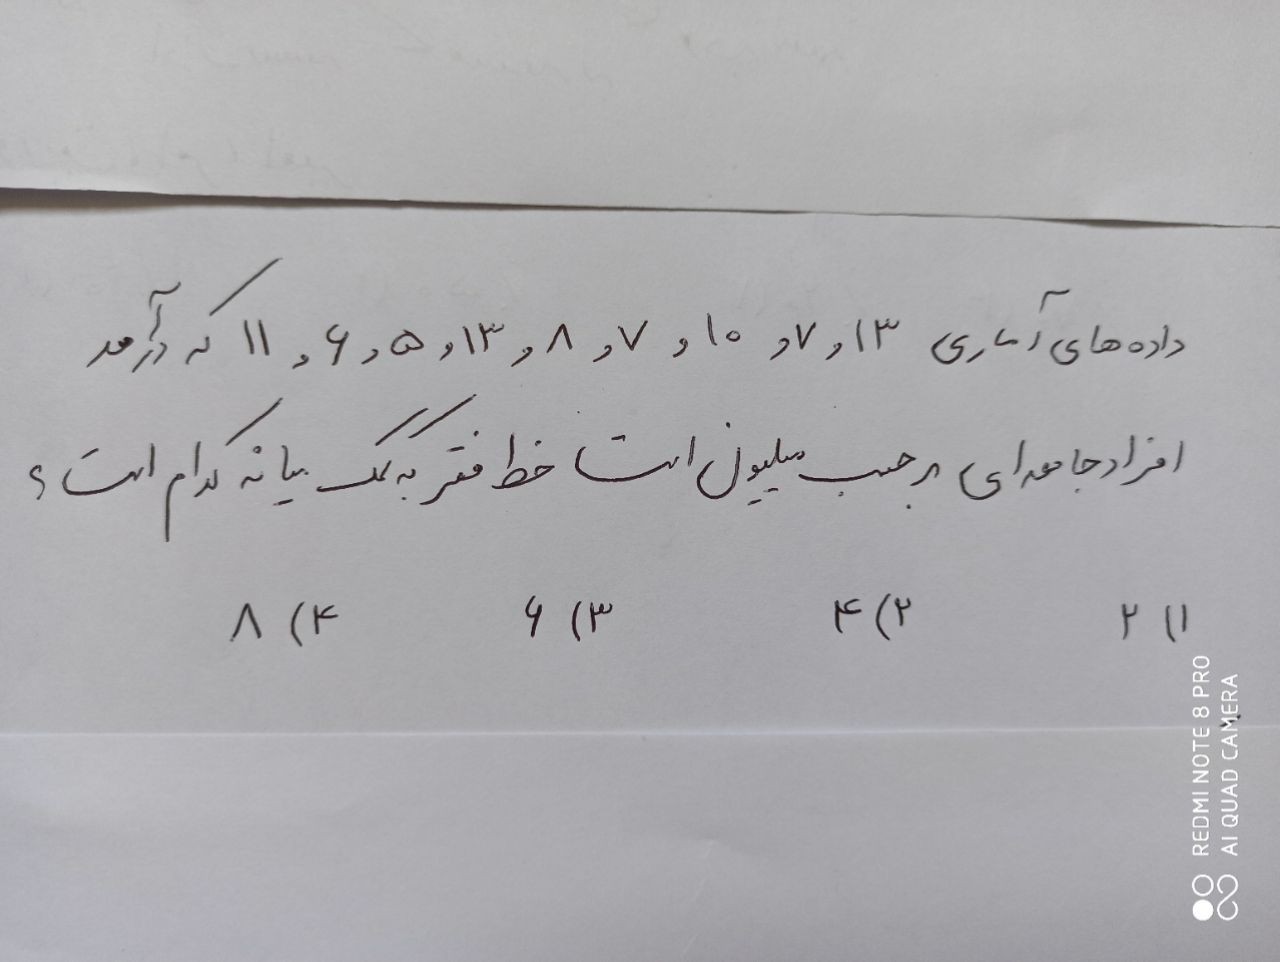 داده‌های آماری ۱۳ و ۷ و ۱۰ و ۷ و ۸ و ۱۳ و ۵ و ۶ و ۱۱ که درآمد
افراد جامعه‌ای بر حسب میلیون است خط فقر به کمک میانه کدام است؟
۱) ۲ ۲) ۴ ۳) ۶ ۴) ۸
REDMI NOTE 8 PRO
AI QUAD CAMERA